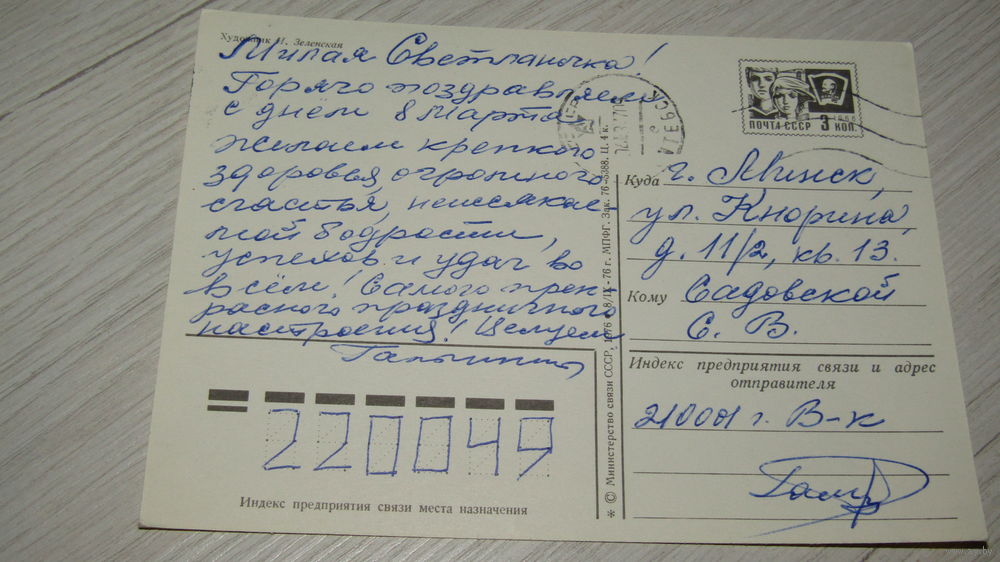 Художник И. Зеленская
Милая Светланочка!
Горячо поздравляем
с днём 8 Марта
Желаем крепкого
здоровья, огромного
счастья, неиссякае-
мой бодрости,
успехов и удач во
всём! Самого прек-
расного праздничного
настроения! Целуем
220049
Индекс предприятия связи места назначения
* © Министерство связи СССР, 1976 8/IX-76 г. МПФГ. Зак. 76-5388. Ц. 4 к.
ПОЧТА СССР 3 КОП.
1966
Куда г. Минск,
ул. Кнорина,
д. 11/2, кв. 13.
Кому Садовской
С. В.
Индекс предприятия связи и адрес
отправителя
210001 г. В-к